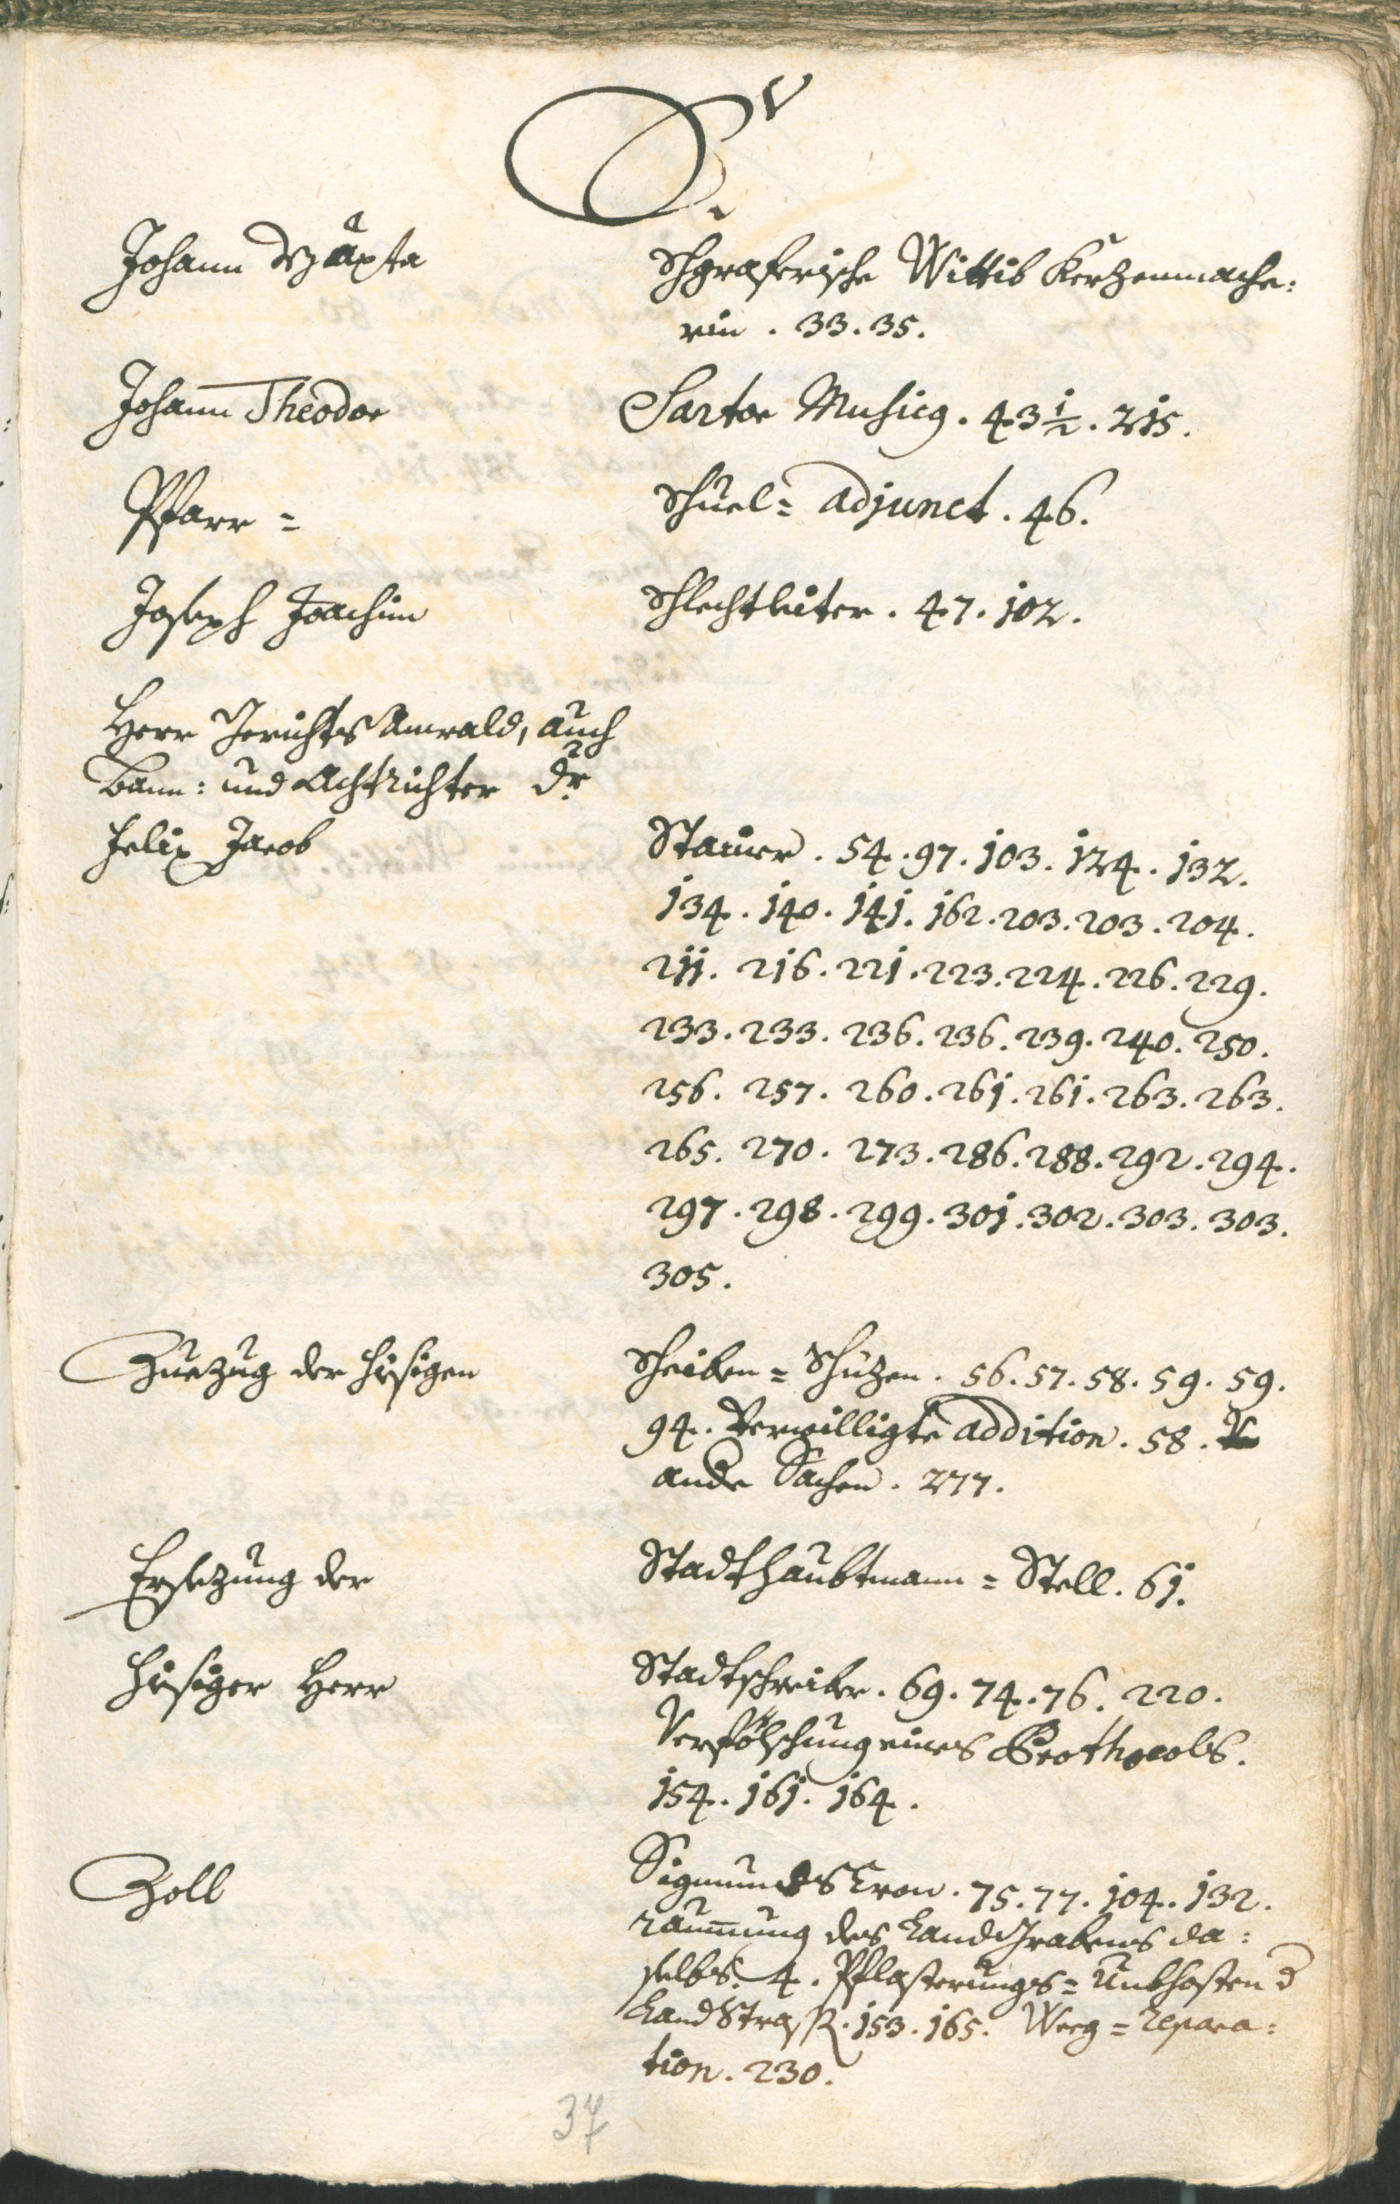 S.
Johann
Schgraferische Wittib Kertzenmache:
rin . 33. 35.
Johann Theodor
Sartor Musicq . 43 1/2 . 215.
Pfarr =
Schuel = adjunct . 46.
Joseph Joachim
Schlechtleiter . 47. 102.
Herr Gerichts Anwald, auch
Bann: und Achtrichter dr
Felix Jacob
Stainer . 54. 97. 103. 124. 132.
134. 140. 141. 162. 203. 203. 204.
211. 216. 221. 223. 224. 226. 229.
233. 233. 236. 236. 239. 240. 250.
256. 257. 260. 261. 261. 263. 263.
265. 270. 273. 286. 288. 292. 294.
297. 298. 299. 301. 302. 303. 303.
305.
Zuezug der hisigen
Scheiben = Schüzen . 56. 57. 58. 59. 59.
94. Verwilligte addition . 58.
andre Sachen . 277.
Ersezung der
Stadthaubtmann = Stell. 61.
Hisiger Herr
Stadtschreiber . 69. 74. 76. 220.
Verfölschung eines Prothocols.
154. 161. 164.
Zoll
Sigmundscron . 75. 77. 104. 132.
raumung des Land Grabens da:
selbs. 4. Pflasterungs = Unkhosten d
Land Strass. 153. 165. Weeg = repara:
tion. 230.
37